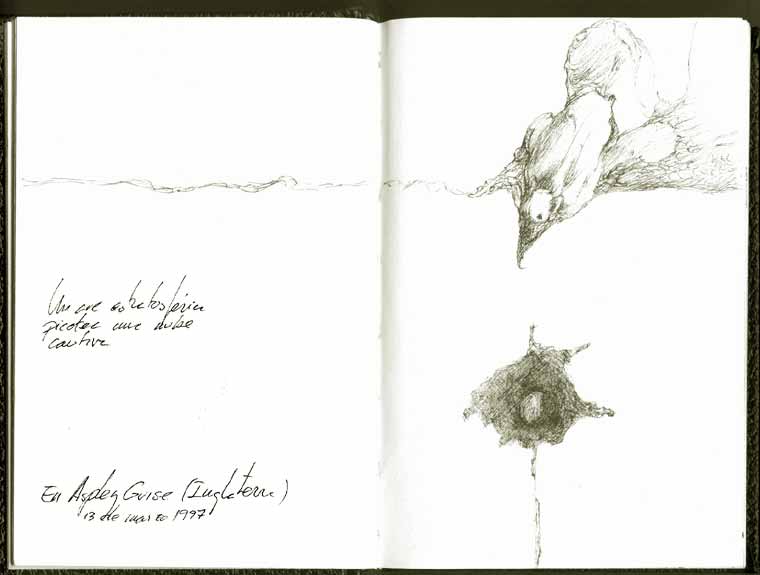 Un ave estratosférica
picotea una nube
cautiva
En Aspley Guise (Inglaterra)
13 de marzo 1997